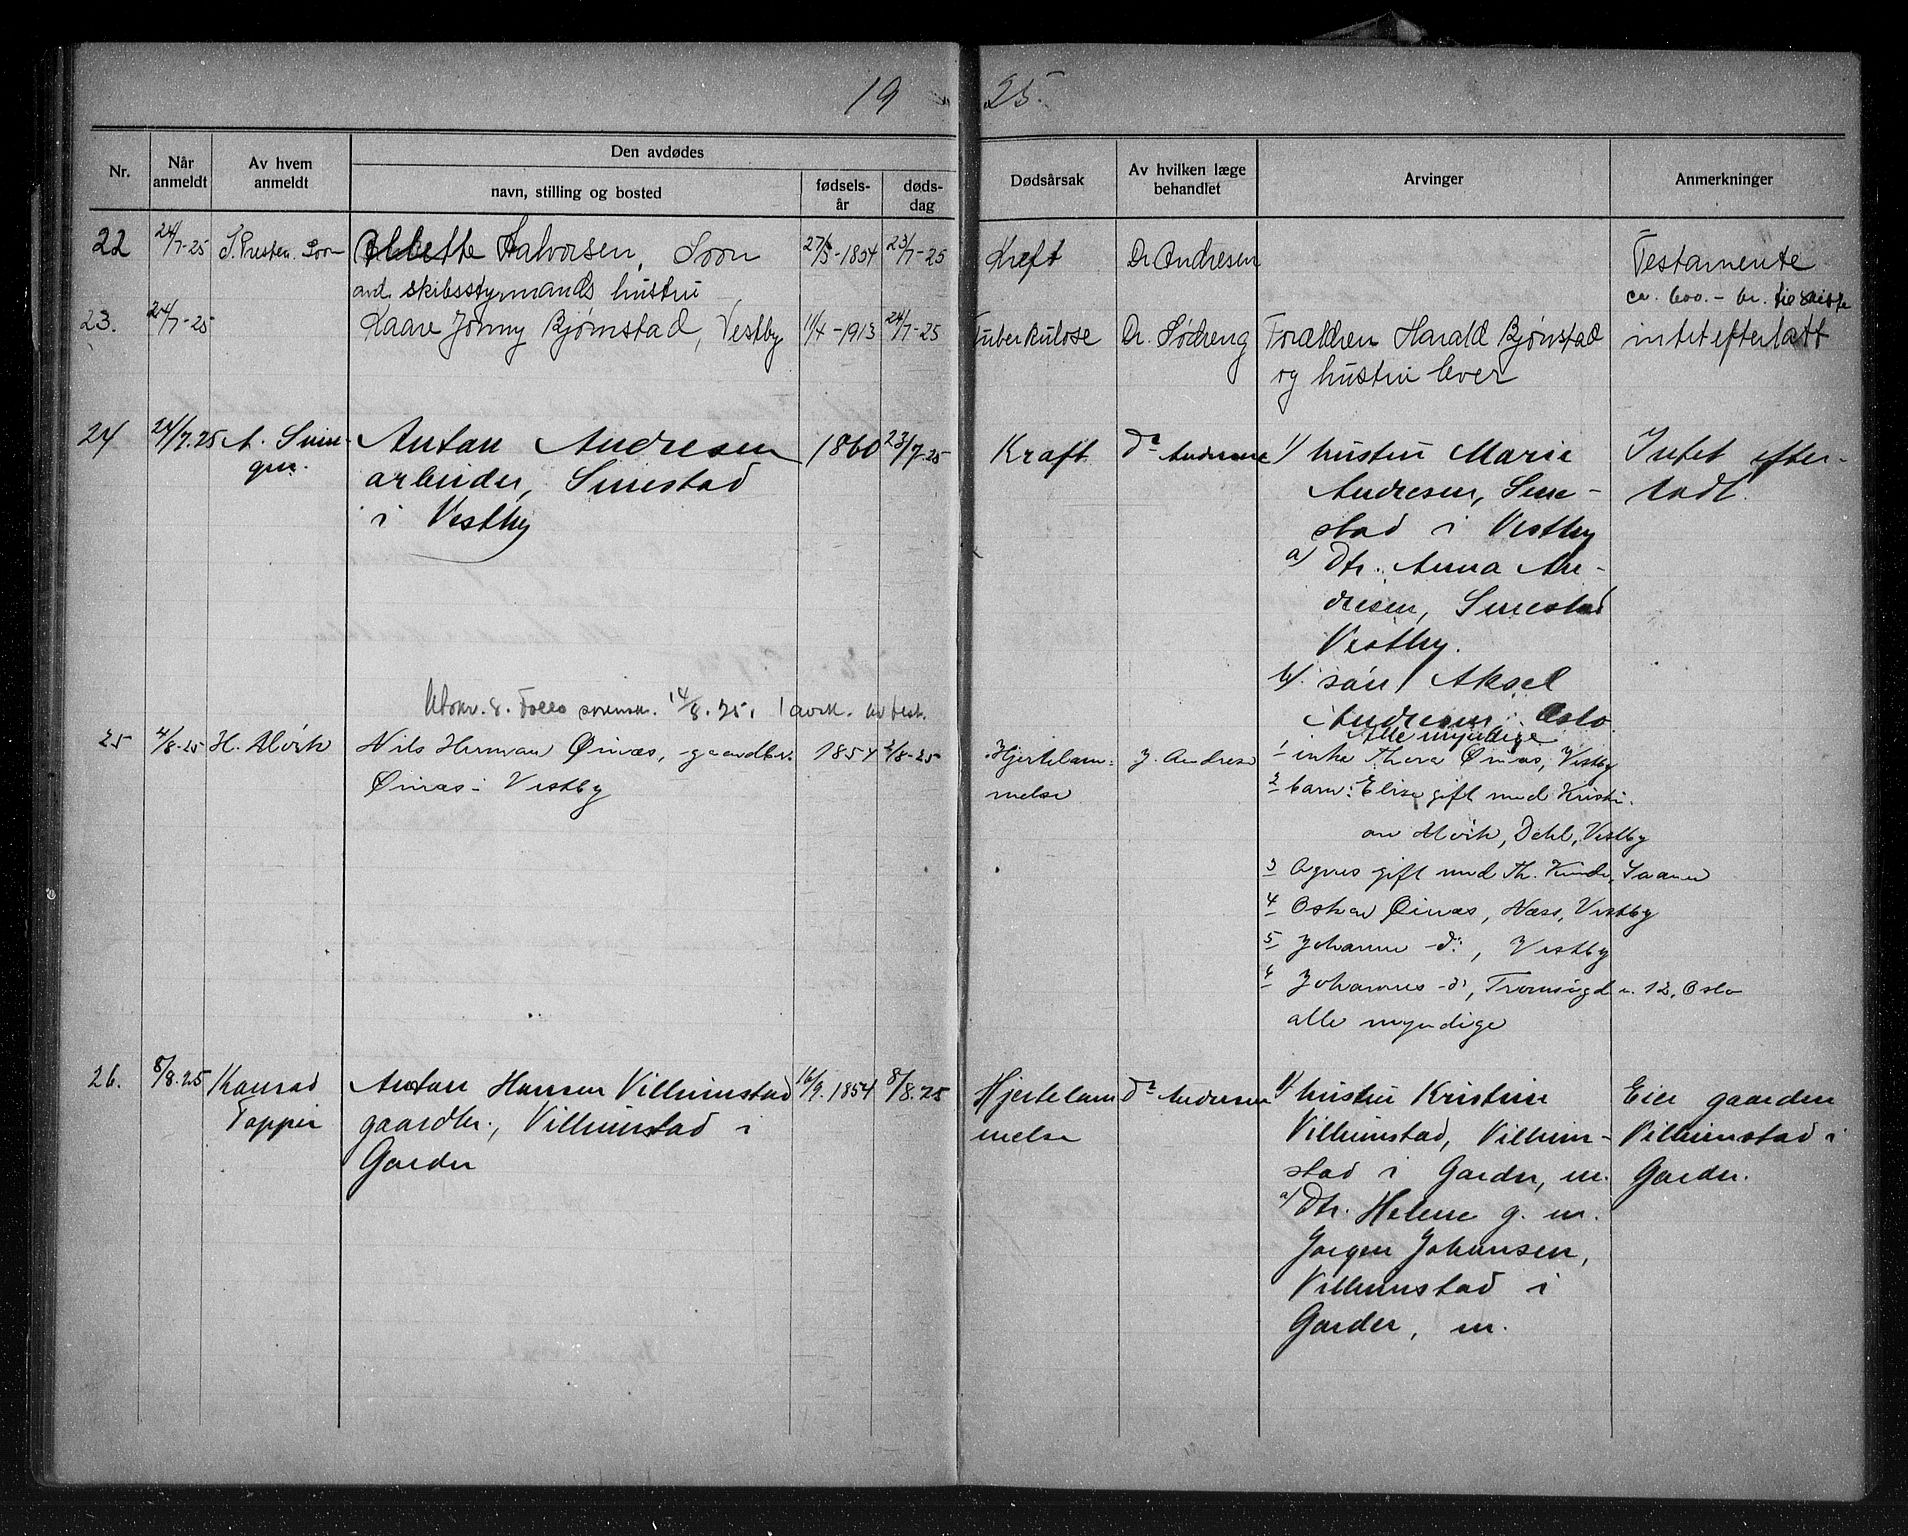 19 25.
Nr.
Når anmeldt
Av hvem anmeldt
Den avdødes
navn, stilling og bosted
fødsels-år
døds-dag
Dødsårsak
Av hvilken læge behandlet
Arvinger
Anmerkninger
22 24/7-25 Halvorsen, Soon 1854 23/7-25 Kreft Dr Andresen Testamente
avd. skibsstyrmands hustru ca. 600.- kr.
23. 24/7-25 Kaare Jonny Bjørnstad, Vestby 11/4-1913 24/7-25 Tuberkulose Dr. Sødreng Forældren Harald Bjørnstad intet efterlatt
og hustru lever
24 24/7.25 A. Anton Andresen 1860 23/7-25 Kraft Dr Andresen 1/ hustru Marie Intet efter-
arbeider, Smestad Andresen, Sme- ladt.
i Vestby stad i Vestby
a/ Dtr. Anna An-
dresen, Smestad
Vestby.
b/. søn Aksel
Andresen, Oslo
Alle myndige
14/8.25.
25 4/8-25 H. Alvik Nils Herman Øinæs, gaardbr. 1854 2/8-25 Hjertelam- J. Andresen 1 enke Thora Øinæs, Vestby
Øinæs - Vestby melse 2 barn: Elise gift med Kristi-
an Alvik, Dehl, Vestby
3 Agnes gift med Th. Kinde, Saaner
4 Oskar Øinæs, Næss, Vestby
5 Johanne do, Vestby
6 Johannes do, 12, Oslo
alle myndige
26. 8/8.25 Konrad Anton Hansen Villumstad 16/9.1854 8/8.25 Hjertelam Dr Andresen 1/ hustru Kristine Eier gaarden
Topper gaardbr., Villumstad i melse Villumstad, Villum- Villumstad i
Garder stad i Garder, m. Garder.
a/ Dtr. Helene g. m.
Jørgen Johansen,
Villumstad i
Garder, m.